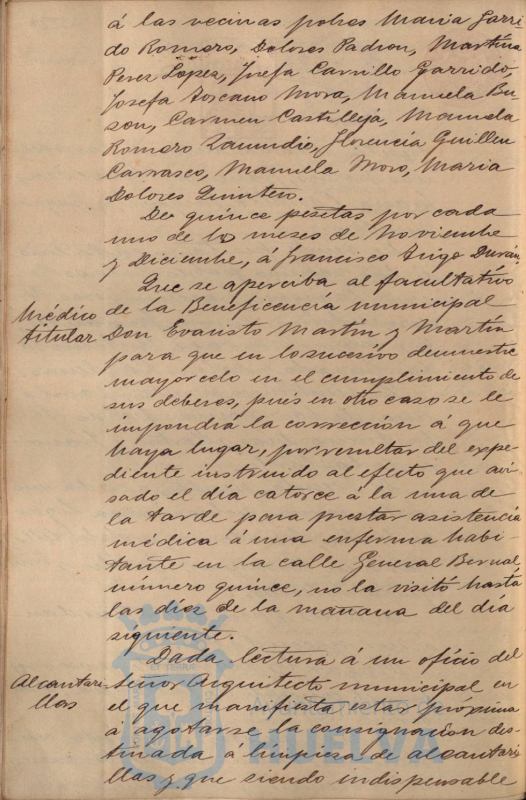 á las vecinas pobres Maria Garri-
do Romero, Dolores Padron, Martina
Perez López, Josefa Carrillo Garrido,
Josefa Toscano Mora, Manuela Bu-
son, Carmen Castilleja, Manuela
Romero Raundio, Florencia Guillen
Carrasco, Manuela Moro, Maria
Dolores Quintero.
De quince pesetas por cada
uno de los meses de Noviembre
y Diciembre, á Francisco Trigo Durán.
Que se aperciba al facultativo
Médico titular
de la Beneficencia municipal
Don Evaristo Martín y Martín
para que en lo sucesivo demuestre
mayor celo en el cumplimiento de
sus deberes, pués en otro caso se le
impondrá la corrección á que
haya lugar, por resultar del expe-
diente instruido al efecto que avi-
sado el día catorce á la una de
la tarde para prestar asistencia
médica á una enferma habi-
tante en la calle General Bernal,
número quince, no la visitó hasta
las diez de la mañana del día
siguiente.
Dada lectura á un oficio del
Alcantari-
llas
Señor Arquitecto municipal en
el que manifiesta estar próxima
á agotarse la consignación des-
tinada á limpieza de alcantari-
llas y que siendo indispensable